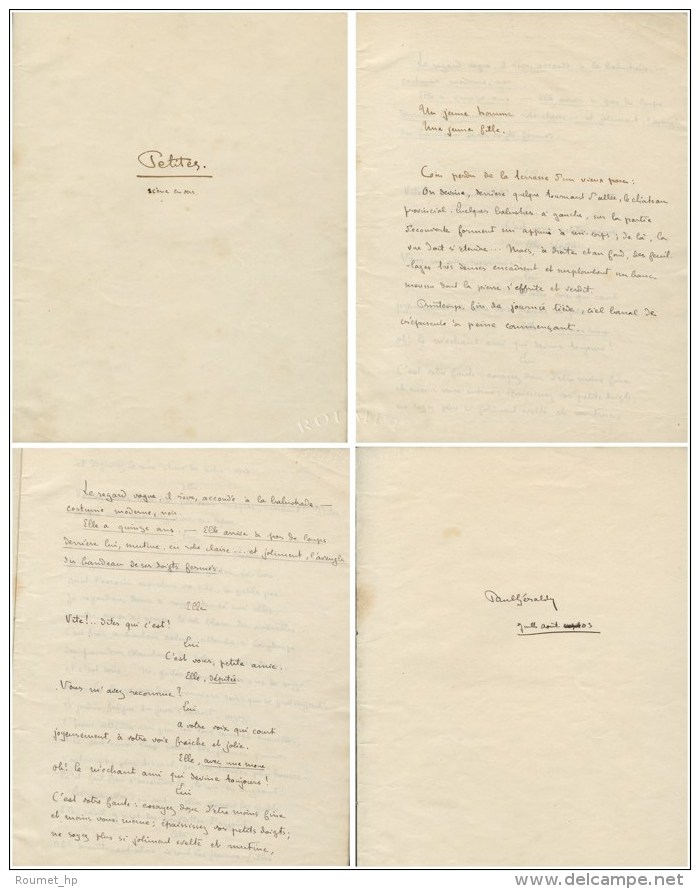 Petites.
scène en vers
Un jeune homme
Une jeune fille.
Coin perdu de la terrasse d'un vieux parc :
On devine, derrière quelque tournant d'allée, le château
provincial. Quelques balustres à gauche, sur la partie
découverte forment un appui à mi-corps ; de là, la
vue doit s'étendre... Mais, à droite et au fond, des feuil-
-lages très denses encadrent et surplombent un banc
moussu dont la pierre s'effrite et verdit
Printemps, fin de journée tiède, ciel banal de
crépuscule à peine commençant.
Le regard vague, il rêve, accoudé à la balustrade. —
costume moderne, noir.
Elle a quinze ans. — Elle arrive à pas de loups
derrière lui, mutine, en robe claire... et joliment, l'aveugle
du bandeau de ses doigts fermés.
Elle
Vite !.. dites qui c'est !
Lui
C'est vous, petite amie.
Elle, dépitée
Vous m'avez reconnue ?
Lui
à votre voix qui court
joyeusement, à votre voix fraîche et jolie.
Elle, avec une moue
oh! le méchant ami qui devine toujours !
Lui
C'est votre faute : essayez donc d'être moins fine
et moins vous-même ; épaississez vos petits doigts ;
ne soyez plus si joliment svelte et mutine,
Paul Géraldy
Juill août 03
ROUMET
Roumet_hp
www.delcampe.net